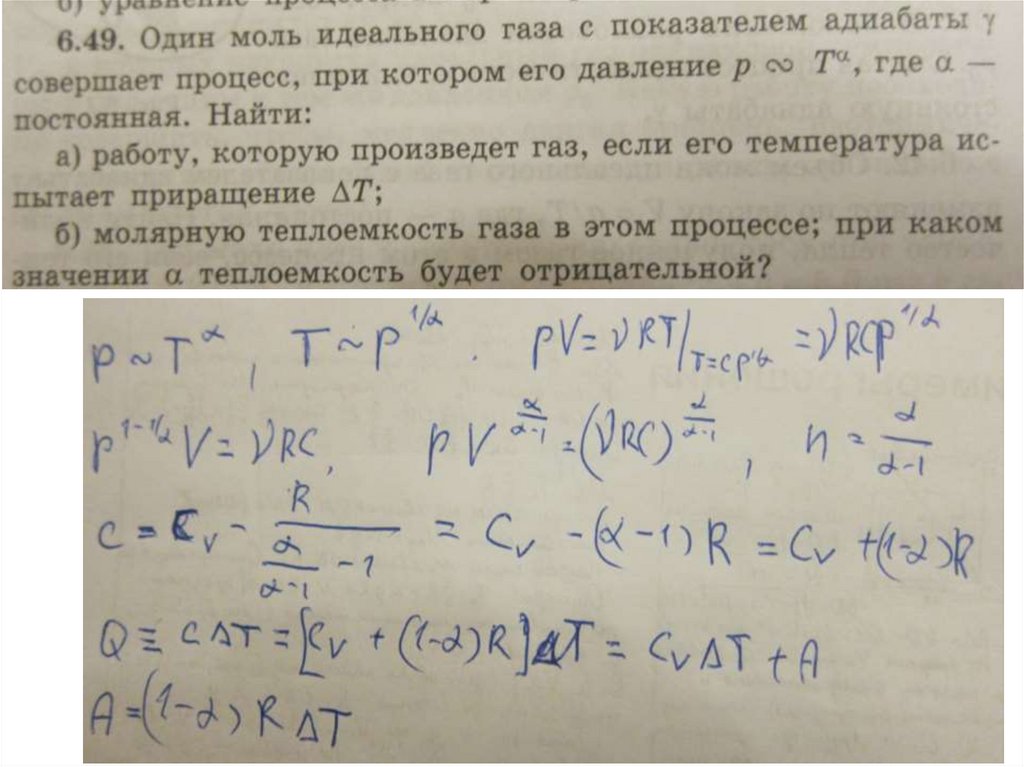 б) уравнение процесса
6.49. Один моль идеального газа с показателем адиабаты γ
совершает процесс, при котором его давление p ∾ T^α, где α —
постоянная. Найти:
а) работу, которую произведет газ, если его температура ис-
пытает приращение ΔT;
б) молярную теплоемкость газа в этом процессе; при каком
значении α теплоемкость будет отрицательной?
p ~ T^α, T ~ p^{1/α}. pV = νRT|_{T=cp^{1/α}} = νRCp^{1/α}
p^{1-1/α} V = νRC, pV^{α/(α-1)} = (νRC)^{α/(α-1)}, n = α/(α-1)
c = C_v - R/(α/(α-1) - 1) = C_v - (α-1)R = C_v + (1-α)R
Q = cΔT = [C_v + (1-α)R]ΔT = C_vΔT + A
A = (1-α)RΔT